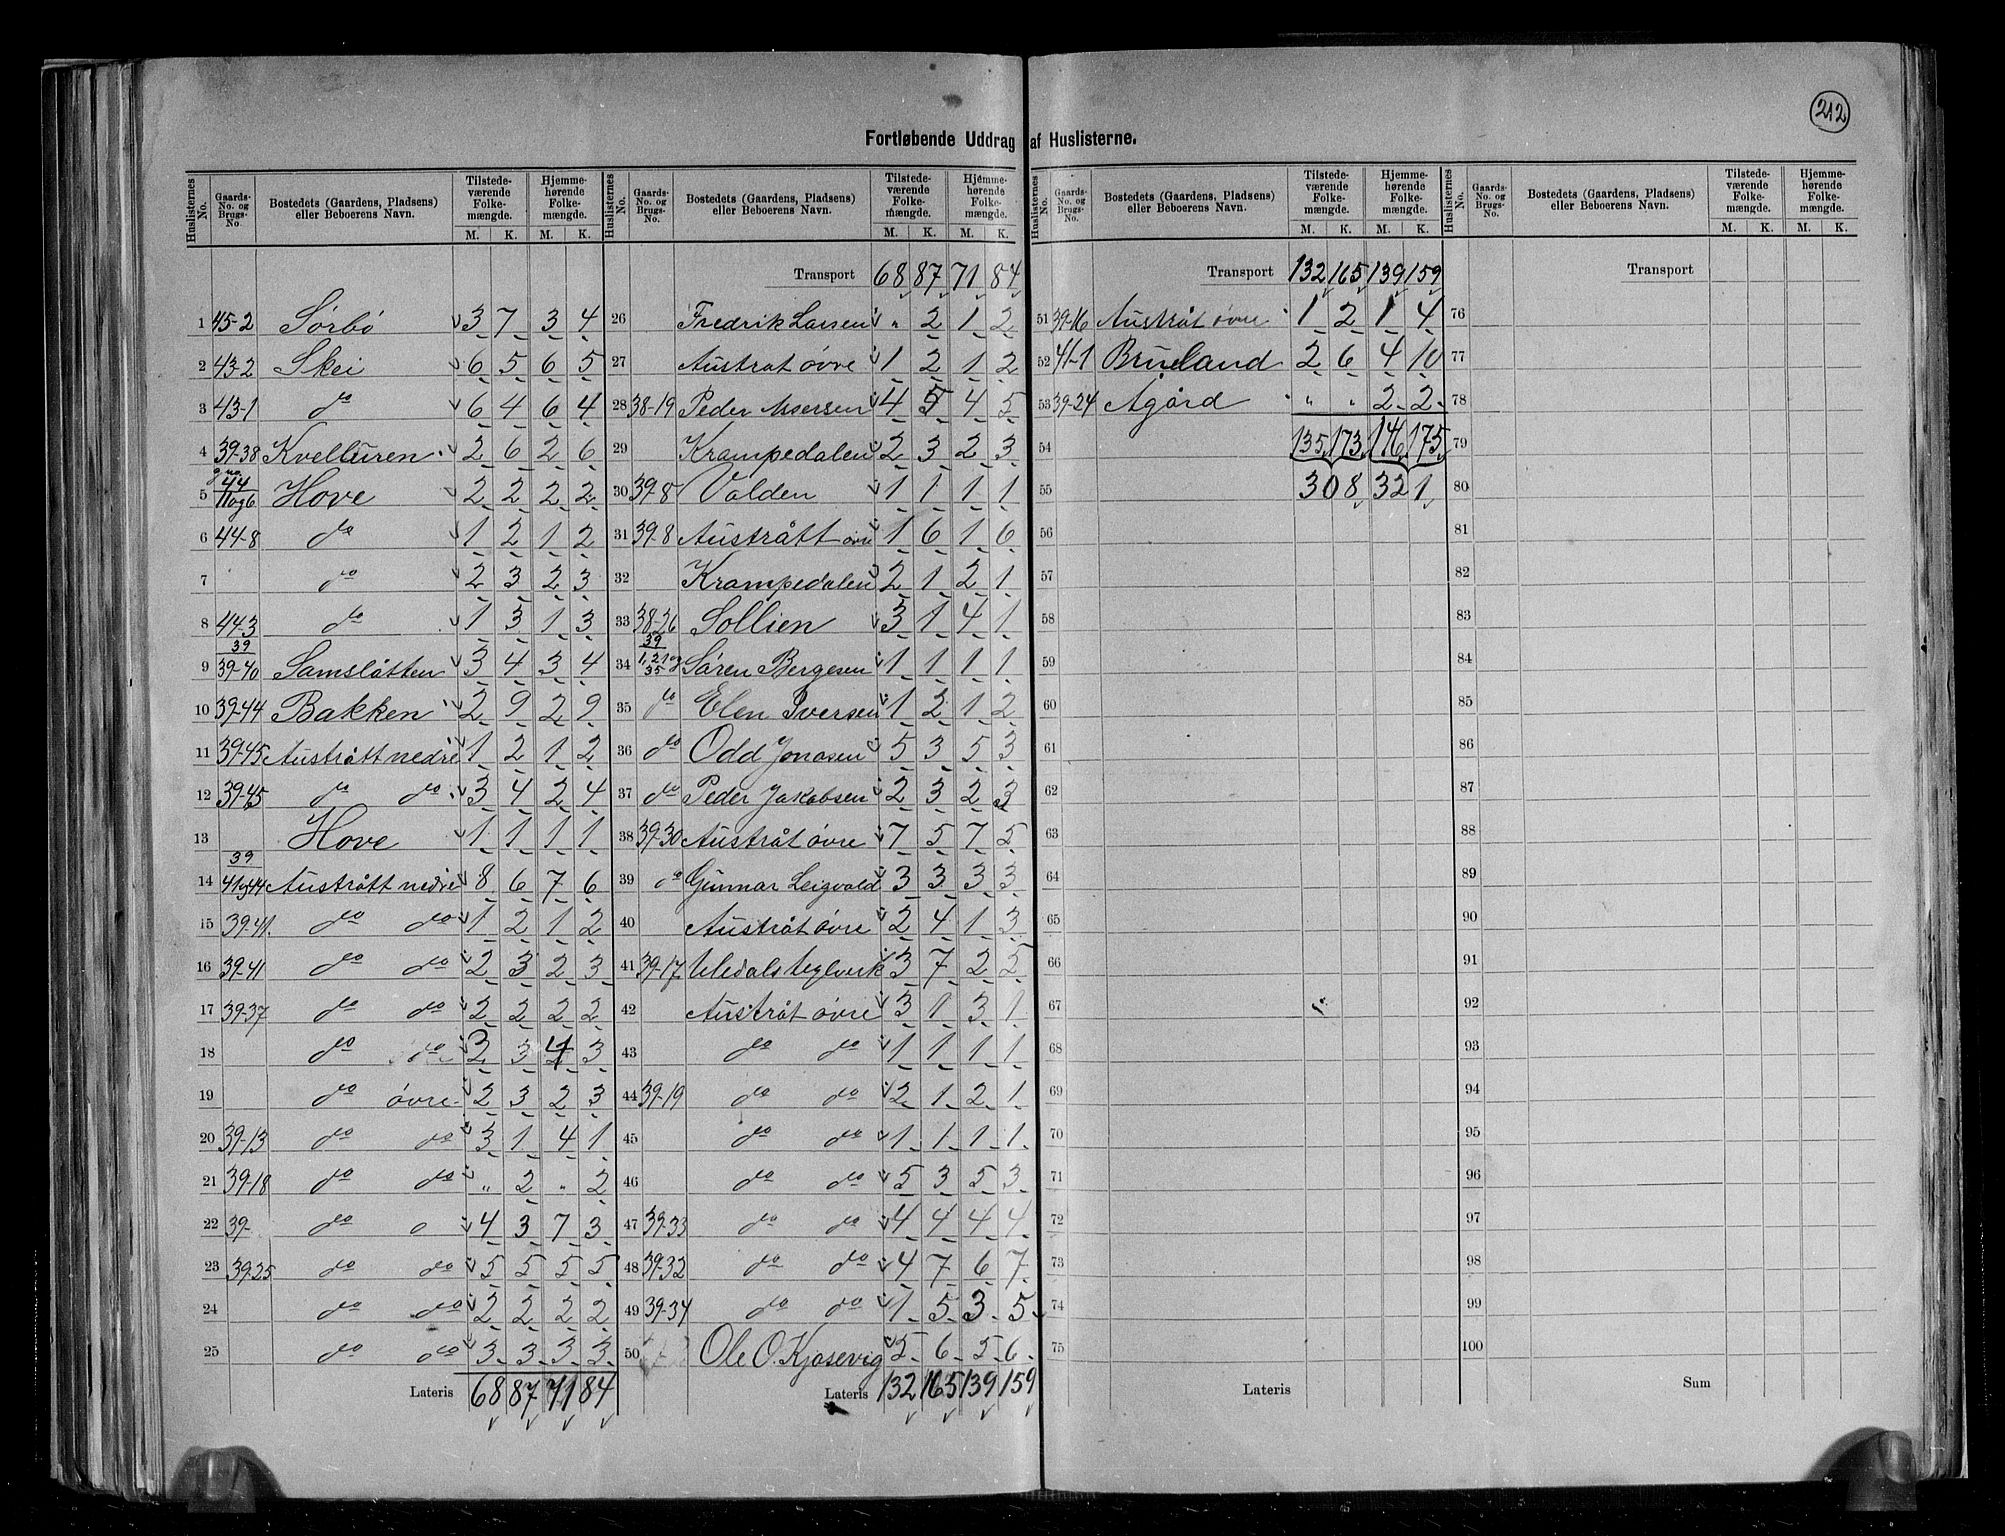 212
Fortløbende Uddrag af Huslisterne.
Huslisternes No. Gaards-No. og Brugs-No. Bostedets (Gaardens, Pladsens) eller Beboerens Navn. Tilstedeværende Folkemængde. M. K. Hjemmehørende Folkemængde. M. K.
1 45-2 Sørbø 3 7 3 4
2 43-2 Skei 6 5 6 5
3 43-1 do 6 4 6 4
4 39-38 Kvelluren 2 6 2 6
5 g no. 44 11 og 6 Hove 2 2 2 2
6 44-8 do 1 2 1 2
7 do 2 3 2 3
8 44-3 do 1 3 1 3
9 39 39-40 Samsløtten 3 4 3 4
10 39-44 Bakken 2 9 2 9
11 39-45 Austrått nedre 1 2 1 2
12 39-45 do do 3 4 2 4
13 Hove 1 1 1 1
14 39 41 og 44 Austrått nedre 8 6 7 6
15 39-41. do do 1 2 1 2
16 39-41 do do 2 3 2 3
17 39-37 do do 2 2 2 2
18 do do 3 4 3
19 do övre 2 3 2 3
20 39-13 do do 3 1 4 1
21 39-18 do do " 2 " 2
22 39- do o 4 3 7 3
23 39-25 do do 5 5 5 5
24 do do 2 2 2 2
25 do do 3 3 3 3
Lateris 68 87 71 84
Huslisternes No. Gaards-No. og Brugs-No. Bostedets (Gaardens, Pladsens) eller Beboerens Navn. Tilstedeværende Folkemængde. M. K. Hjemmehørende Folkemængde. M. K.
Transport 68 87 71 84
26 Fredrik Larsen " 2 1 2
27 Austråt övre 1 2 1 2
28 38-19 Peder 4 5 4 5
29 Krampedalen 2 3 2 3
30 39-8 Volden 1 1 1 1
31 39-8 Austrått övre 1 6 1 6
32 Krampedalen 2 1 2 1
33 38-26 Sollien 3 1 4 1
34 39 1, 21 og 35 Søren Bergesen 1 1 1 1
35 do Elen Iversen 1 2 1 2
36 do Odd Jonasen 5 3 5 3
37 do Peder Jakobsen 2 3 2 3
38 39-30 Austråt övre 7 5 7 5
39 do Gunnar Leigvold 3 3 3 3
40 Austråt övre 2 4 1 3
41 39-17 teglverk 3 7 2 5
42 Austråt övre 3 1 3 1
43 do do 1 1 1 1
44 39-19 do do 2 1 2 1
45 do do 1 1 1 1
46 do do 5 3 5 3
47 39-33 do do 4 4 4 4
48 39-32 do do 4 7 6 7
49 39-34 do do 1 5 3 5
50 Ole O. Kjosevig 5 6 5 6
Lateris 132 165 139 159
Huslisternes No. Gaards-No. og Brugs-No. Bostedets (Gaardens, Pladsens) eller Beboerens Navn. Tilstedeværende Folkemængde. M. K. Hjemmehørende Folkemængde. M. K.
Transport 132 165 139 159
51 39-16 Austråt övre 1 2 1 4
52 41-1 Brueland 2 6 4 10
53 39-24 Agård " " 2 2
54 135 173 146 175
55 308 321
56
57
58
59
60
61
62
63
64
65
66
67
68
69
70
71
72
73
74
75
Lateris
Huslisternes No. Gaards-No. og Brugs-No. Bostedets (Gaardens, Pladsens) eller Beboerens Navn. Tilstedeværende Folkemængde. M. K. Hjemmehørende Folkemængde. M. K.
Transport
76
77
78
79
80
81
82
83
84
85
86
87
88
89
90
91
92
93
94
95
96
97
98
99
100
Sum